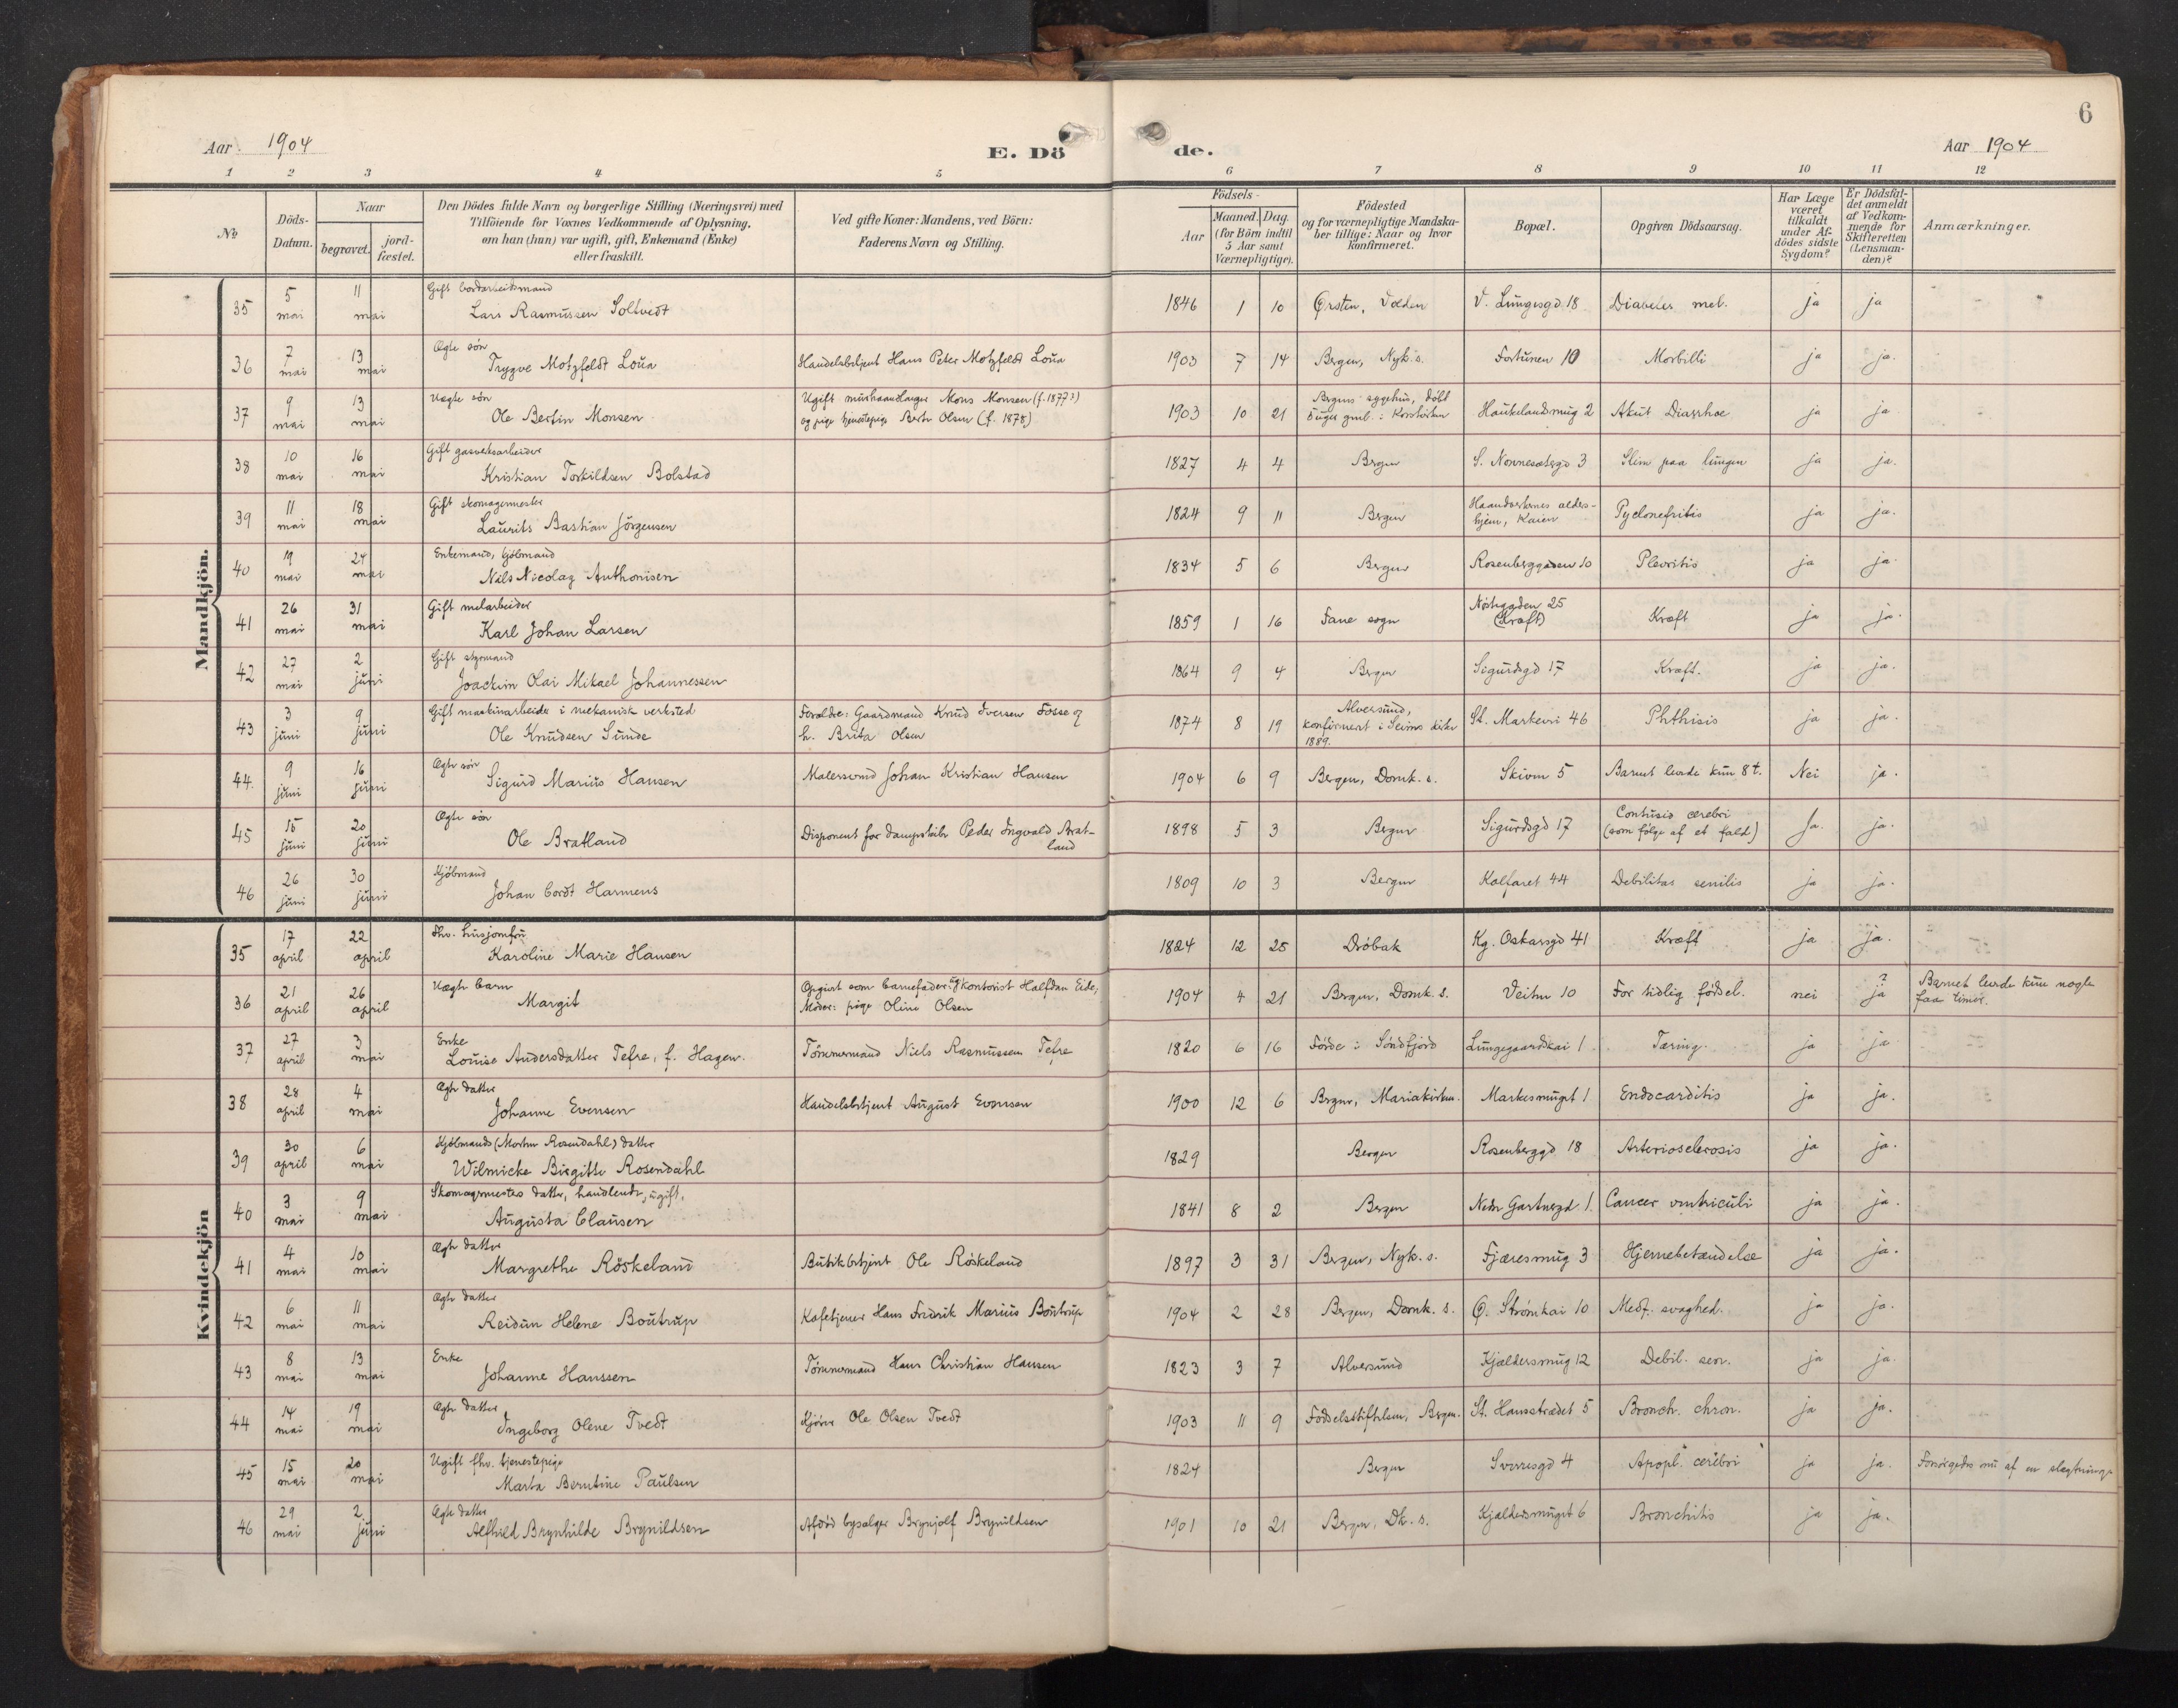 6
Aar 1904
E. Dö
de.
Aar 1904
1 2 3 4 5 6 7 8 9 10 11 12
No
Döds-Datum.
Naar
begravet.
jord-fæstet.
Den Dödes fulde Navn og borgerlige Stilling (Næringsvei) med
Tilföiende for Voxnes Vedkommende af Oplysning,
om han (hun) var ugift, gift, Enkemand (Enke)
eller fraskilt.
Ved gifte Koner: Mandens, ved Börn:
Faderens Navn og Stilling.
Födsels-
Aar
Maaned. Dag
(for Börn indtil
5 Aar samt
Værnepligtige).
Födested
og for værnepligtige Mandska-
ber tillige: Naar og hvor
konfirmeret.
Bopæl.
Opgiven Dödsaarsag.
Har Læge
været
tilkaldt
under Af-
dödes sidste
Sygdom?
Er Dödsfal-
det anmeldt
af Vedkom-
mende for
Skifteretten
(Lensman-
den)?
Anmærkninger.
Mandkjön.
35 5 mai 11 mai Gift
Lars Rasmussen Soltvedt 1846 1 10 Ørsten, Volden V. Lungesgd. 18 Diabetes mel. ja ja
36 7 mai 13 mai Ægte søn
Trygve Motzfeldt Loua Handelsbetjent Hans Peter Motzfeldt Loua 1903 7 14 Bergen, Nyk. s. Fortunen 10 Morbilli ja ja.
37 9 mai 13 mai Uægte søn
Ole Bertin Monsen Ugift murhaandlanger Mons Monsen (f. 1877?)
og pige tjenestepige Olsen (f. 1878) 1903 10 21 Bergens sygehus, døbt
5 uger gml. i Korskirken Haukelandsmug 2 Akut Diarrhoe ja ja
38 10 mai 16 mai Gift gasverksarbeider
Kristian Torkildsen Bolstad 1827 4 4 Bergen S. Nonnesætergd 3 Slim paa lungen ja ja.
39 11 mai 18 mai Gift skomagermester
Laurits Bastian Jörgensen 1824 9 11 Bergen Haandverkernes alders-
hjem, Kaien Pyelonefritis ja ja.
40 19 mai 24 mai Enkemand, kjøbmand
Nils Nicolay Anthonisen 1834 5 6 Bergen Rosenberggaden 10 Plevritis ja ja.
41 26 mai 31 mai Gift melarbeider
Karl Johan Larsen 1859 1 16 Fane sogn Nøstegaden 25
(Kræft) Kræft ja ja.
42 27 mai 2 juni Gift styrmand
Joackim Olai Mikael Johannessen 1864 9 4 Bergen Sigurdsgd 17 Kræft. ja ja.
43 3 juni 9 juni Gift maskinarbeider i mekanisk verksted
Ole Knudsen Sunde Forældre: Gaardmand Knud Iversen Fosse og
h. Brita Olsen 1874 8 19 Alversund,
konfirmert i Seims kirke
1889. St. Markevei 46 Phthisis ja ja.
44. 9 juni 16 juni Ægte søn
Sigurd Marius Hansen Malersvend Johan Kristian Hansen 1904 6 9 Bergen, Domk. s. Skiven 5 Barnet levde kun 8 t. Nei ja.
45 15 juni 20 juni Ægte søn
Ole Bratland Disponent for dampskibe Peder Ingvald Brat-
land 1898 5 3 Bergen Sigurdsgd 17 Contusio cerebri
(som følge af et fald) Ja. ja.
46 26 juni 30 juni Kjöbmand
Johan Cordt Harmens 1809 10 3 Bergen Kalfaret 44 Debilitas senilis ja ja.
Kvindekjön
35 17 april 22 april Fhv. husjomfru
Karoline Marie Hansen 1824 12 25 Dröbak Kg. Oskarsgd 41 Kræft ja ja.
36 21 april 26 april Uægte barn
Margit Opgivet som barnefader: ug. kontorist Halfdan Eide;
Moder: pige Oline Olsen 1904 4 21 Bergen, Domk. s. Veiten 10 For tidlig fødsel. nei ?
ja Barnet levde kun nogle
faa timer.
37 27 april 3 mai Enke
Louise Andersdatter Tefre, f. Hagen. Tömmermand Niels Rasmussen Tefre 1820 6 16 Förde i Söndfjord Lungegaardskai 1 Tæring. ja ja
38 28 april 4 mai Ægte datter
Johanne Evensen Handelsbetjent August Evensen 1900 12 6 Bergen, Mariakirken. Markesmuget 1 Endocarditis ja ja.
39 30 april 6 mai Kjöbmands (Morten Rosendahl) datter
Wilmicke Birgitte Rosendahl 1829 Bergen Rosenberggd. 18 Arteriosclerosis ja ja.
40 3 mai 9 mai Skomagermesters datter, handlende, ugift,
Augusta Clausen 1841 8 2 Bergen Nedre Gartnergd. 1. Cancer ventriculi ja ja.
41 4 mai 10 mai Ægte datter
Margrethe Röskeland Butikbetjent Ole Röskeland 1897 3 31 Bergen, Nyk. s. Fjæresmug 3 Hjernebetændelse ja ja.
42 6 mai 11 mai Ægte datter
Reidun Helene Boutrup Kafetjener Hans Fredrik Marius Boutrup 1904 2 28 Bergen, Domk. s. Ø. Strömkai 10 Medf. svaghed. ja ja.
43 8 mai 13 mai Enke
Johanne Hanssen Tömmermand Hans Christian Hansen 1823 3 7 Alversund Kjældersmug 12 Debil. sen. ja ja.
44 14 mai 19 mai Ægte datter
Ingeborg Olene Tvedt Kjörer Ole Olsen Tvedt 1903 11 9 Födselsstiftelsen, Bergen. St. Hansstrædet 5 Bronch. chron. ja ja.
45 15 mai 20 mai Ugift fhv. tjenestepige
Marta Berntine Paulsen 1824 Bergen Sverresgd 4 Apopl. cerebri ja ja. Forsörgedes nu af en slegtning
46 29 mai 2 juni Ægte datter
Alfhild Brynhilde Brynildsen Afdöd bysælger Brynjolf Brynildsen 1901 10 21 Bergen, Dk. s. Kjældersmuget 6 Bronchitis ja ja.